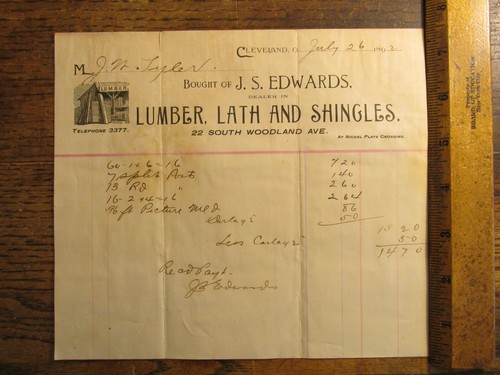 CLEVELAND, O. July 26 1902
M J. W. Tyler.
BOUGHT OF J. S. EDWARDS,
DEALER IN
LUMBER
LUMBER, LATH AND SHINGLES.
TELEPHONE 3377.
22 SOUTH WOODLAND AVE.
AT NICKEL PLATE CROSSING.
60-1x6-16 720
7 Split Posts 140
13 Rd " 260
16-2x4-16 264
ft Picture Mld 86
Cartage 50
1520
Less Cartage 50
1470
Recd Payt.
J S Edwards
BOARD OF EDUCATION